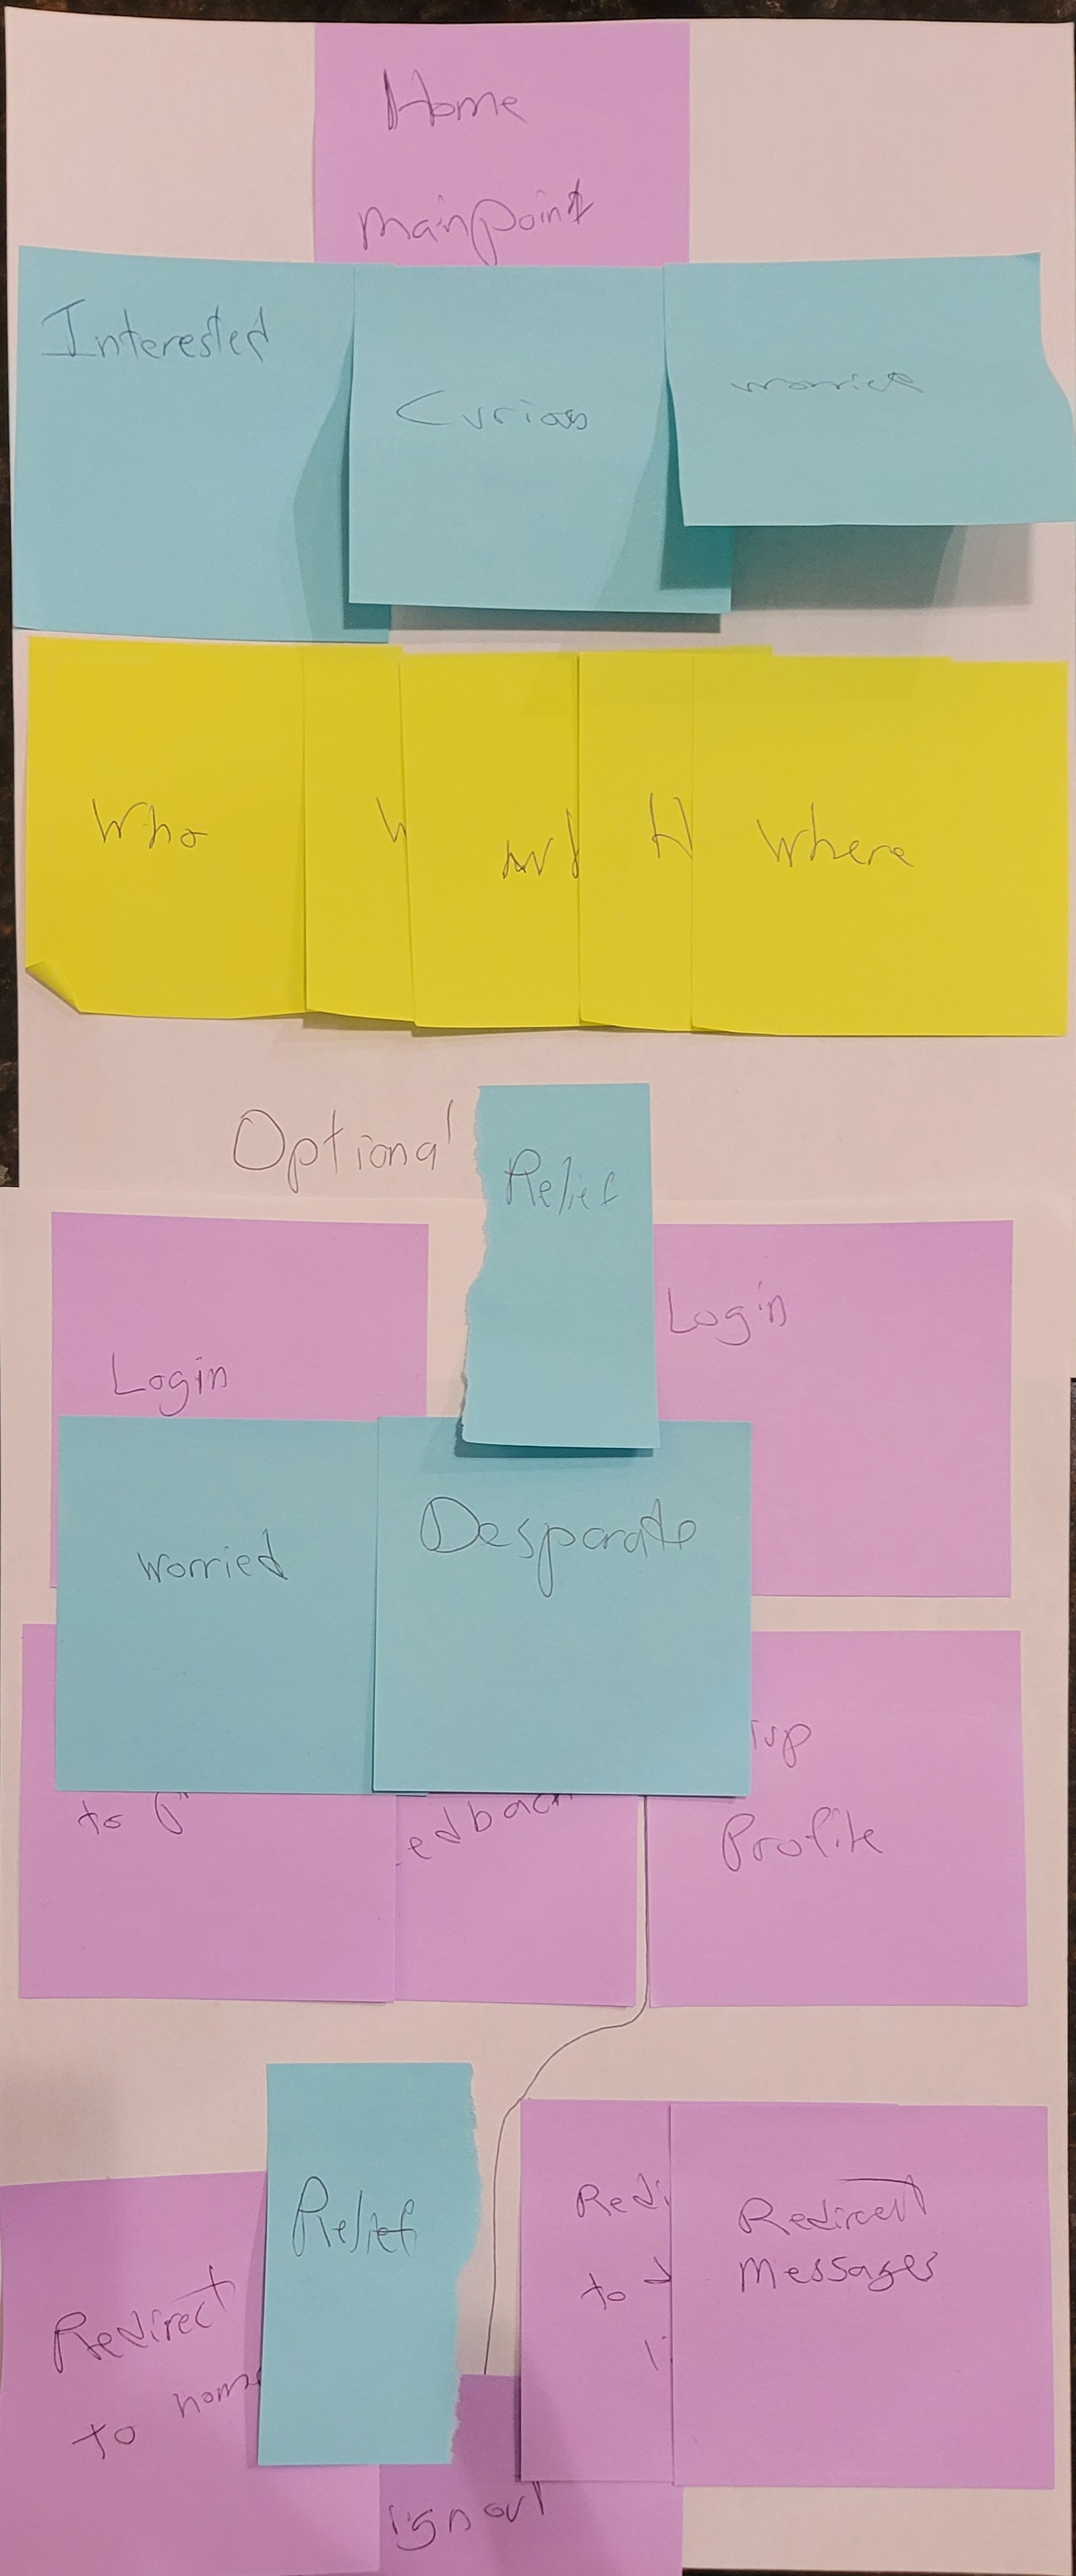 Home
mainpoint
Interested
Curious
worried
Who
W
H
Where
Optional
Relief
Login
Login
Worried
Desparate
up
to
edback
Profile
Relief
Redirect
to home
Redi
to
Redirect
Messages
ign out